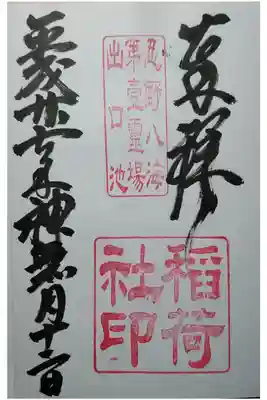 奉拝
忍野八海
第壹靈場
出口池
稻荷
社印
平成廿七年神無月十二日